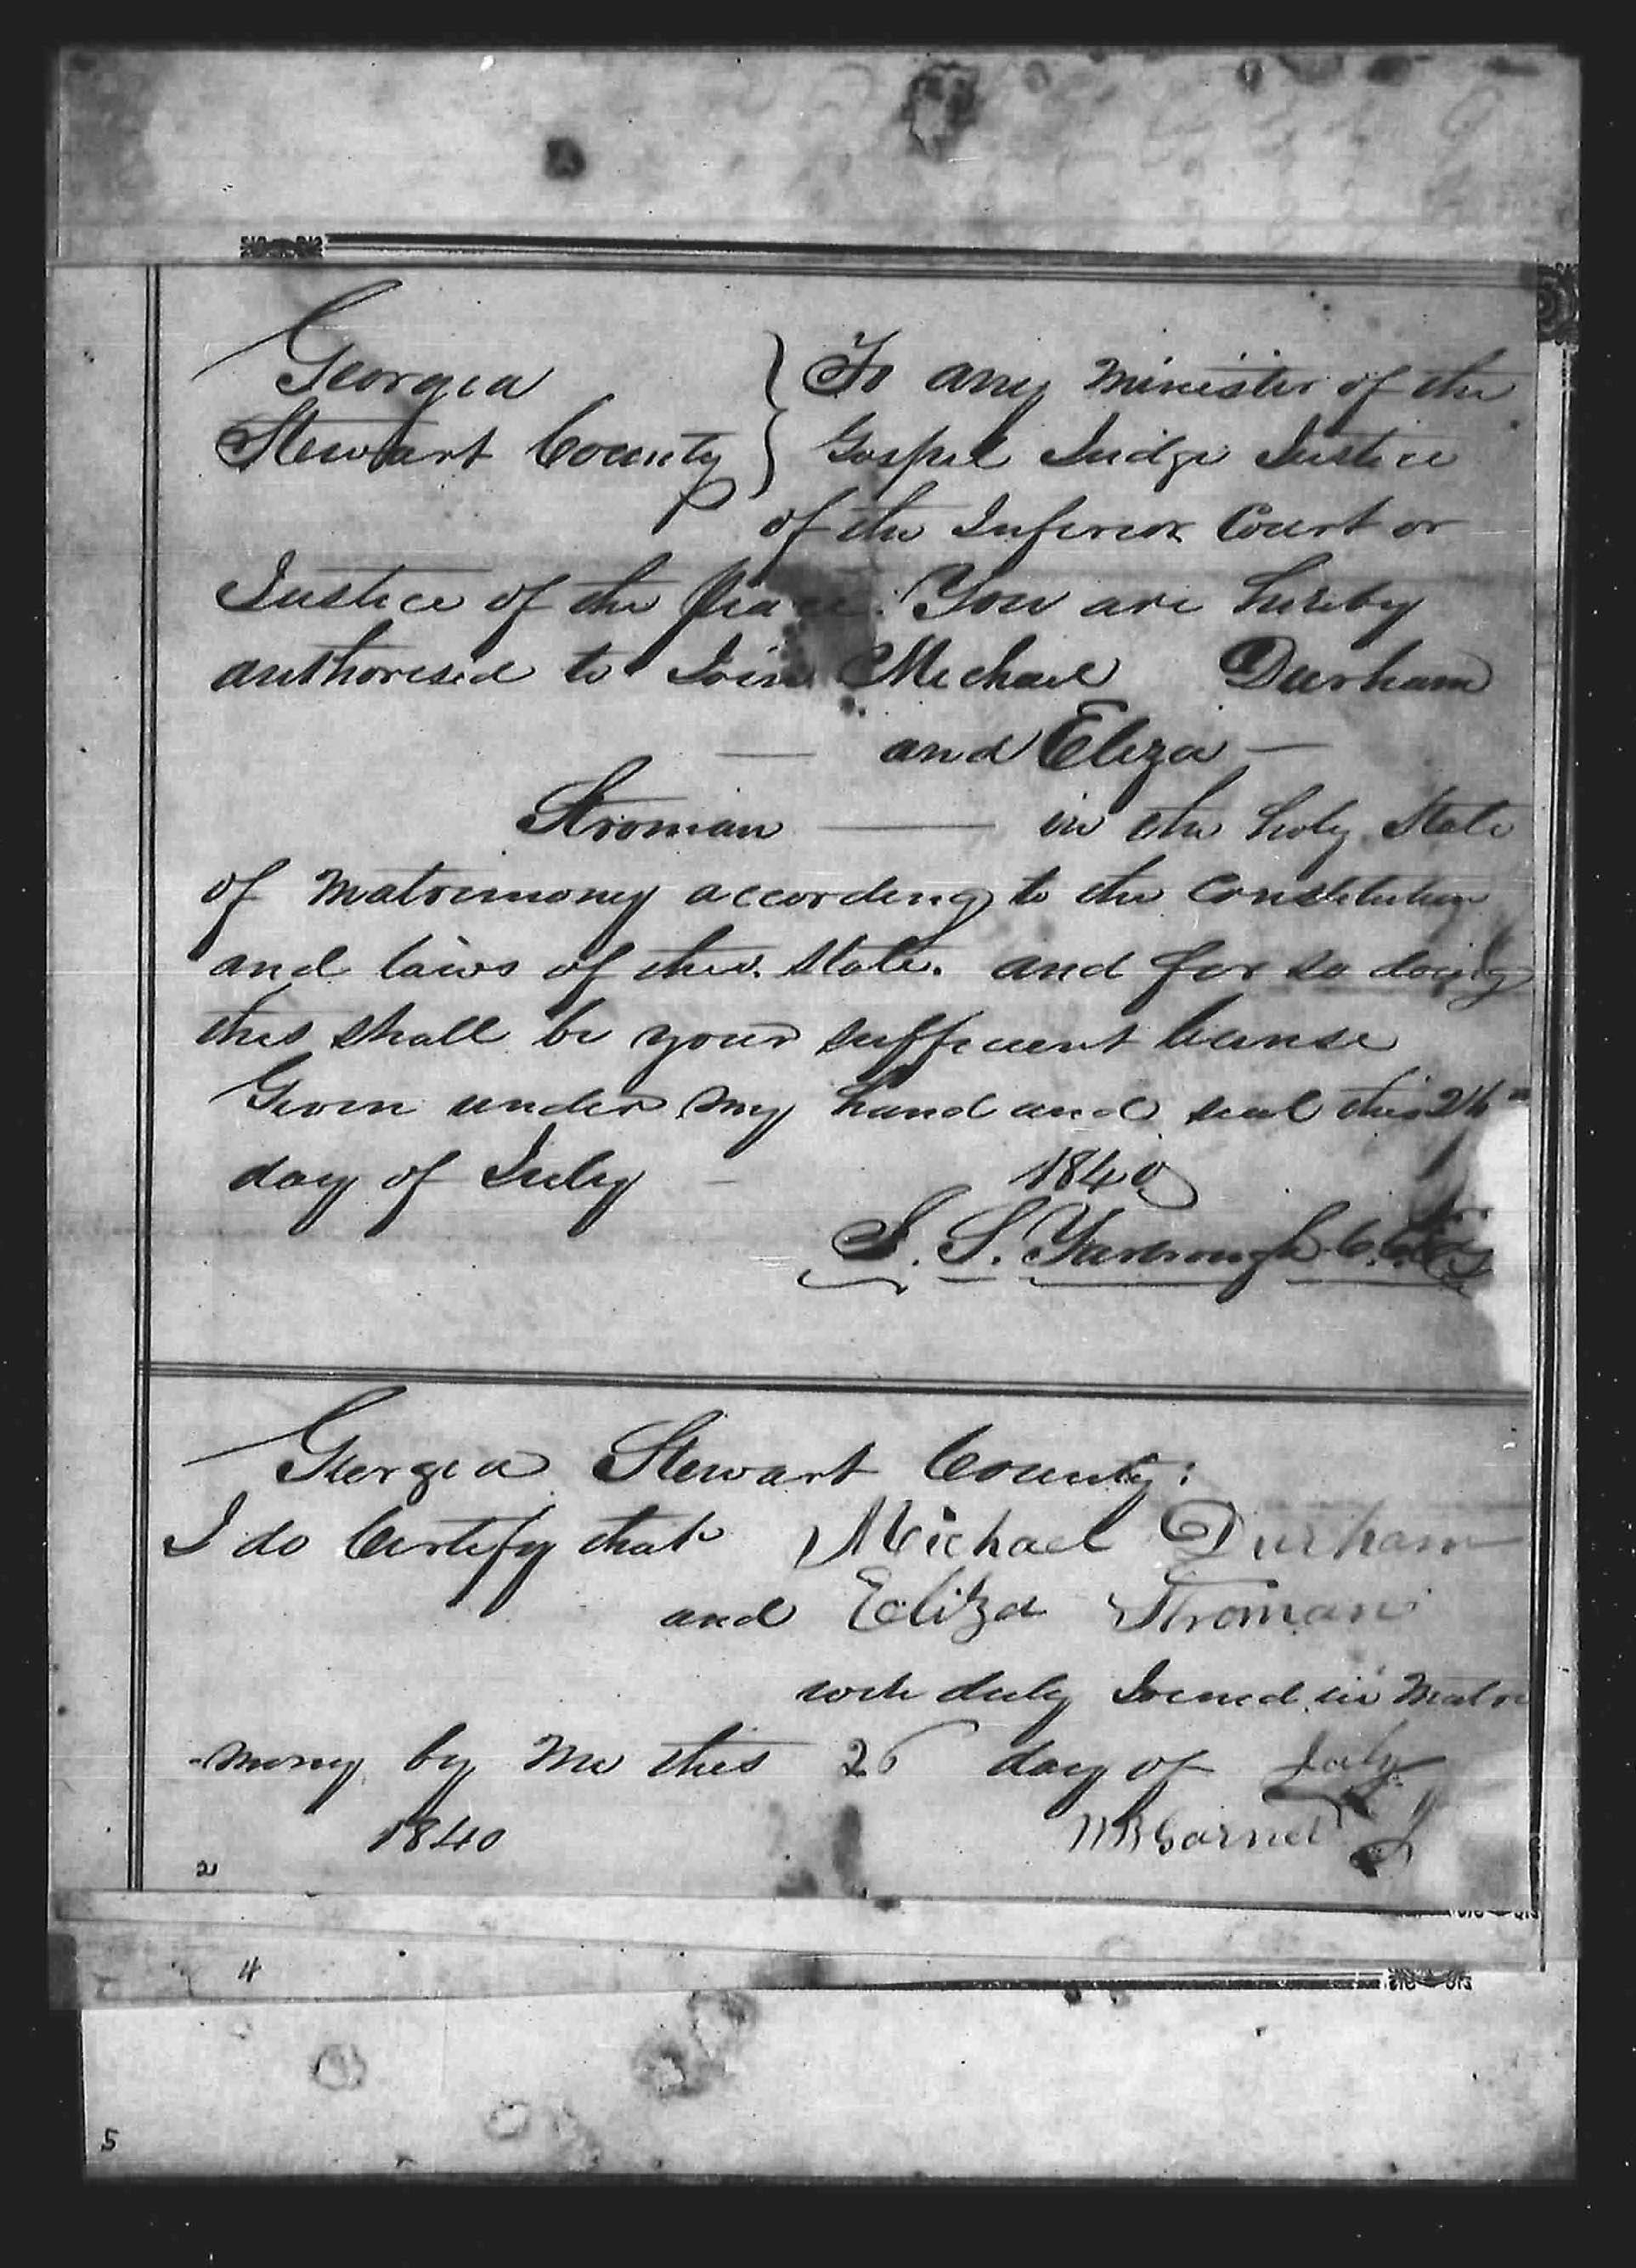 Georgia } To any minister of the
Stewart County } Gospel Judge Justice
of the Inferior Court or
Justice of the Peace. You are hereby
authorised to Join Michael Durham
— and Eliza —
Stroman — in the holy State
of matrimony according to the Constitution
and laws of this State. and for so doing
this shall be your sufficient license
Given under my hand and seal this
day of July - 1840
S. S. Yarbrough
Georgia Stewart County:
I do Certify that Michael Durham
and Eliza Stroman
were duly Joined in Matri
-mony by me this 26 day of July
1840 Garnet
2
4
5